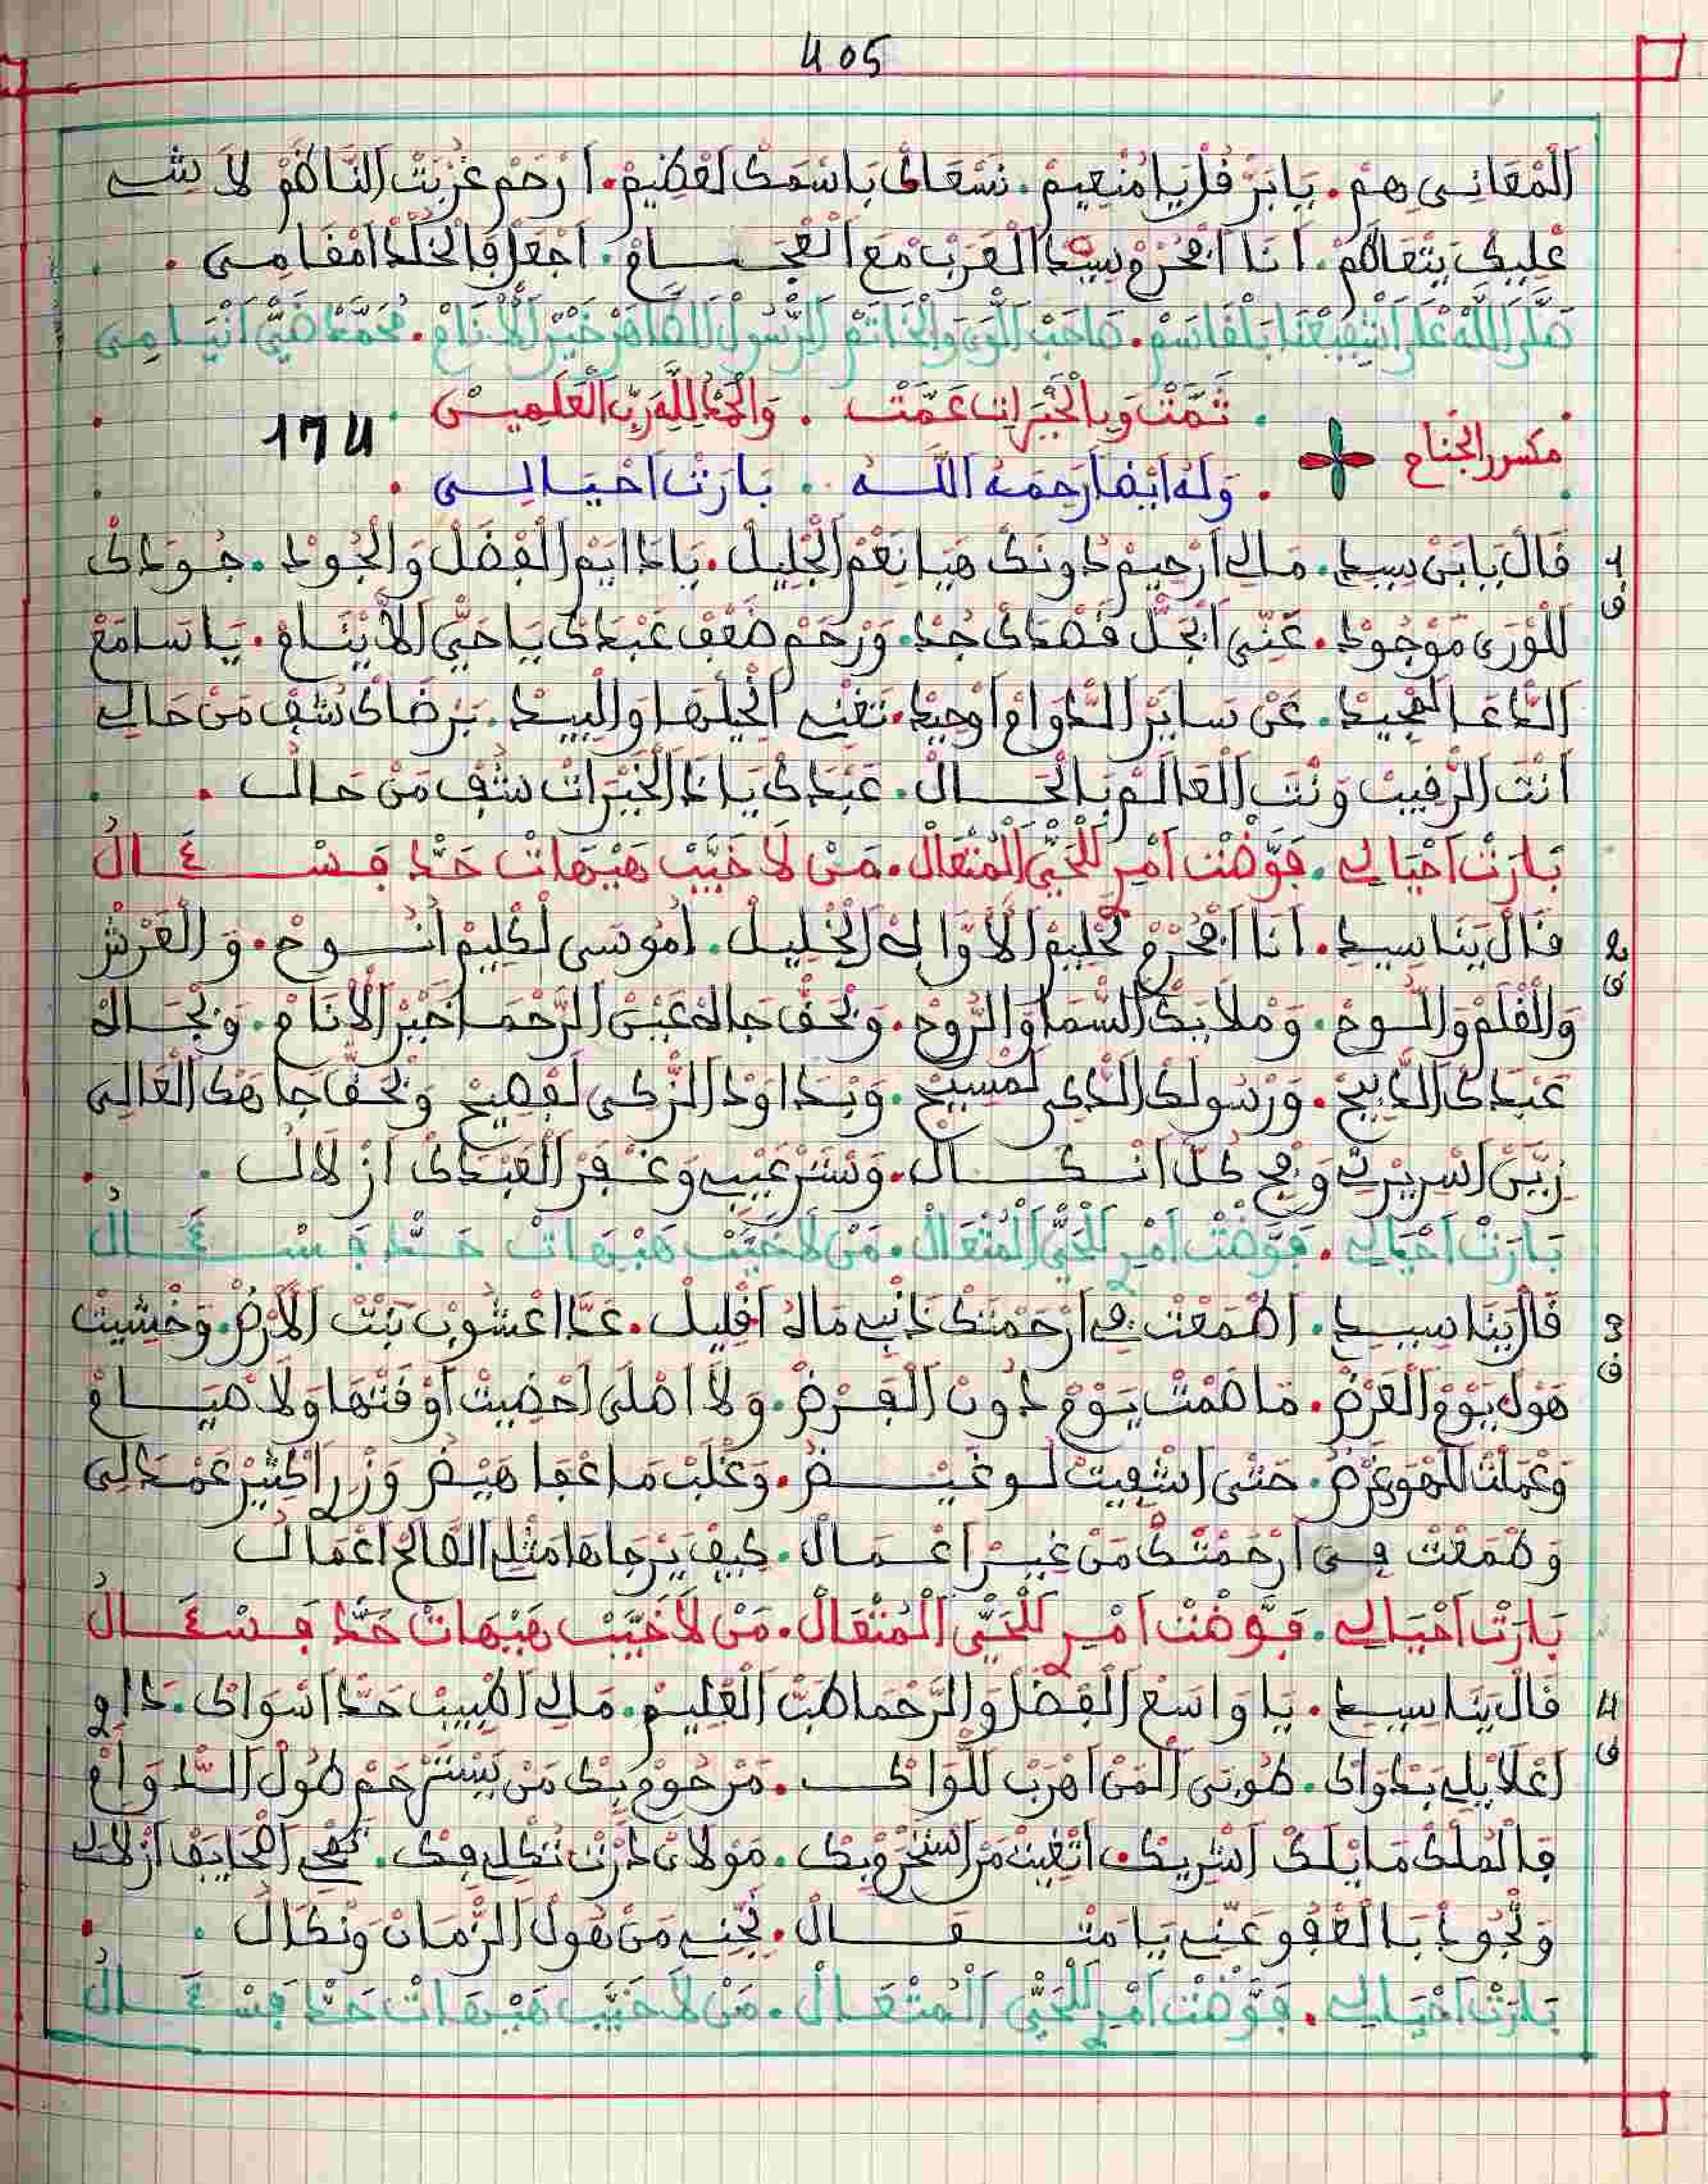 405
المعاني هم. يا بر قل يا منعيم. نسعاك باسمك لعظيم. ارحم غربت الناظم لا شي
عليك يتعاظم. انا افحرم سيد العرب مع العجام. اجعل فالخلد امقامي.
صلى الله على اشفيعنا بلقاسم. صاحب اللوى والخاتم الرسول الطاهر خير الانام. محمد ضي انيامي
تمت وبالخيرات عمت. والحمد لله رب العلمين.
مكسور الجناح
174
وله ايضا رحمه الله. بارت احيالي.
1
قال يا بني سيدي. مالي ارحيم دونك هيا نعم الجليل. يا دايم الفضل والجود. جودك
ف
للورى موجود. عني ابخل قصدك جد. ورحم ضعف عبدك يا حي لا ينام. يا سامع
الدعا المجيد. عن ساير الدوام اوحيد. تفني الخيلها والبيد. برضاك شف من حالي
انت الرقيب ونت العالم بالحال. عبدك يا ذا الخيرات شف من حال.
بارت احيالي. فوضت امري للحي المتعال. من لا خيب هيهات حد فسعال
2
قال يناسيدي. انا افحرم كليم الاواه الخليل. اموسى لكليم انوح. والعرش
ف
والقلم واللوح. وملايك السما والروح. وبحق جاه عين الرحما خير الانام. وبجاه
عبدك الذبيح. ورسولك الذكي لمسيح. وبداوود الزكي لفصيح وبحق جاهك العالي
زين اسريرتي ونجي كل انكال. وستر عيبي وغفر العبدك ازلال.
بارت احيالي. فوضت امري للحي المتعال. من لا خيب هيهات حد فسعال
3
قال يناسيدي. اطمعت في ارحمتك ذانبي ماه اقليل. عدا اعشوب نبت الارض. وخشيت
ف
هول يوم العرض. ما صمت يوم دون الفرض. ولا اصلى احضيت اوقتها ولا صيام
وعملت للهو غرض. حتى اشفيت لوغيض. وغلب ماعفا هيض وزري اكثير عمدالي
وطمعت في ارحمتك من غير اعمال. كيف يرجاها مثلي الطالح اعمال
بارت احيالي. فوضت امري للحي المتعال. من لا خيب هيهات حد فسعال
4
قال يناسيدي. يا واسع الفضل والرحما طب العليم. مالي اطبيب حد اسواك. داوي
ف
اعلايلي بدواك. طوبى المن اهرب للواك. مرحوم بك من يسترحم طول الدوام
فالملك ما يلك اشريك. اتغيت من استحرم بك. مولاي درت تكلي فيك. تمحي اصحايف ازلالي
وتجود بالعفو عني يا متعال. نجني من هول الزمان ونكال.
بارت احيالي. فوضت امري للحي المتعال. من لا خيب هيهات حد فسعال